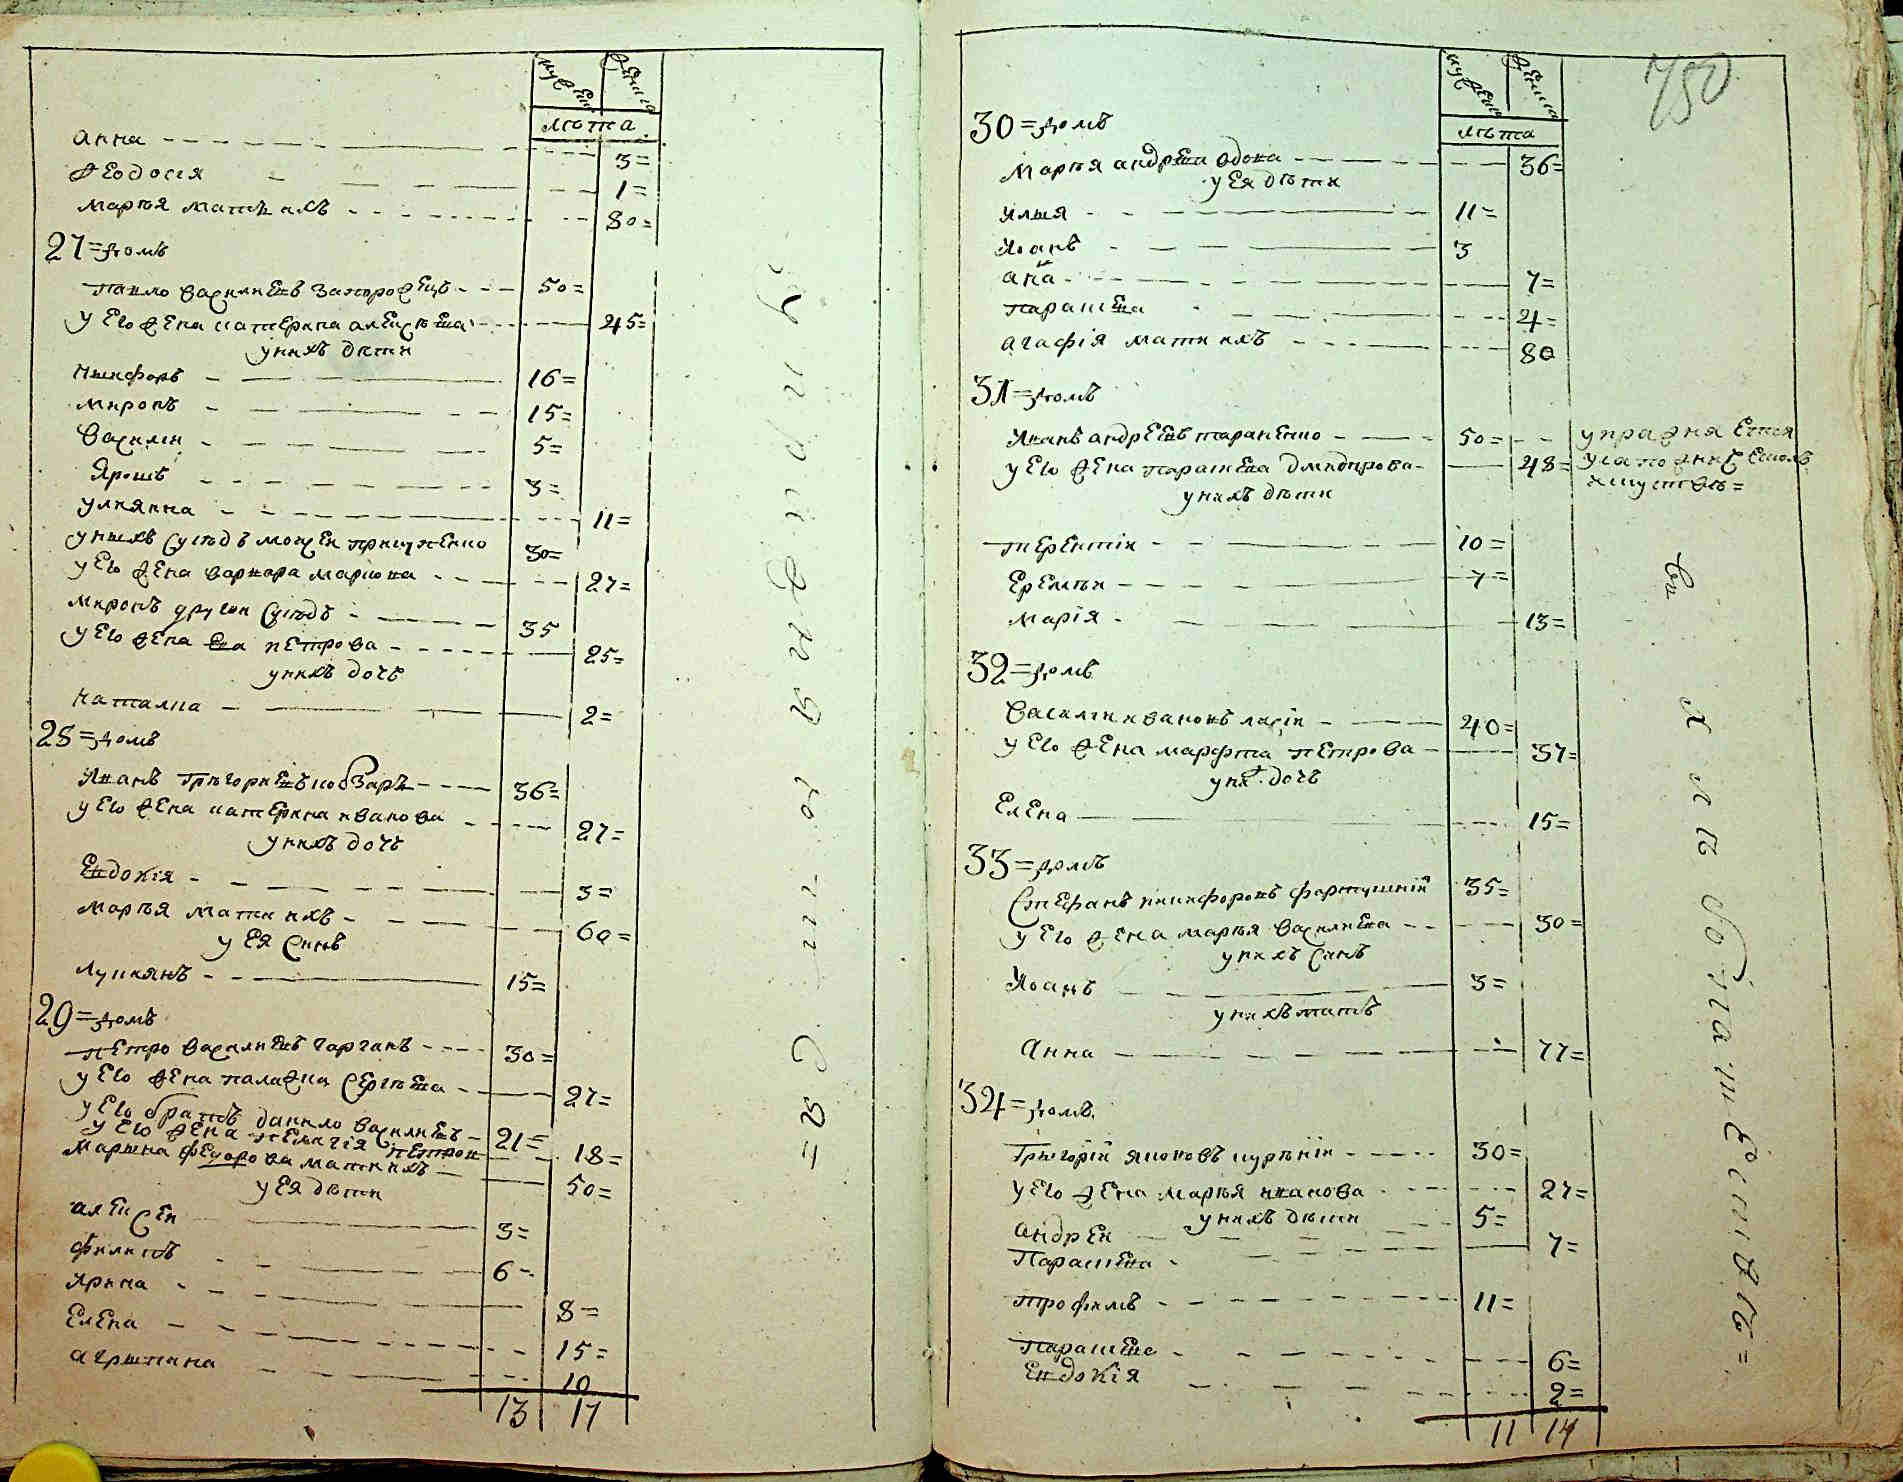 мужеска
женска
лѣта
анна 3=
Феодосія 1=
марья мати ихъ 80=
27= домъ
павло василиевъ запорожецъ 50=
у его жена катерина алексѣева 45=
у нихъ дѣти
никифоръ 16=
миронъ 15=
василии 5=
Ярошъ 3=
улияна 11=
у нихъ сусѣдъ моисеи 30=
у его жена варвара 27=
миронъ другои сусѣдъ 35
у его жена ева петрова 25=
у нихъ дочь
наталиа 2=
28= домъ
Иванъ григориевъ кобзаръ 36=
у его жена катерина иванова 27=
у нихъ дочь
Евдокія 3=
марья мати ихъ 60=
у ея синъ
лукиянъ 15=
29= домъ
петро василиевъ чарганъ 30=
у его жена палажка сергѣева 27=
у его братъ данило василиевъ 21=
у его жена пелагія петрова 18=
марина федорова мати ихъ 50=
у ея дѣти
алексеи 3=
филипъ 6=
Ярина 8=
Елена 15=
агрипина 10
13 17
украинского
750
мужеска
женска
лѣта
30= домъ
марья андреева вдова 36=
у ея дѣти
илия 11=
Иоанъ 3
анна 7=
параскева 4=
агафія мати ихъ 80
31= домъ
Иванъ андреевъ тараненко 50= упражняется
у его жена параскева дмидтрова 48= у сапожническомъ
у нихъ дѣти искуствѣ=
терентіи 10=
Еремѣи 7=
марія 13=
32= домъ
василии ивановъ 40=
у его жена марфта петрова 37=
у них дочь
Елена 15=
33= домъ
Стефанъ никифоровъ фартушній 35=
у его жена марья василиева 30=
у нихъ синъ
Иоанъ 3=
у нихъ мать
анна 77=
34= домъ
григорій якововъ курѣніи 30=
у его жена марья иванова 27=
у нихъ дѣти
андреи 5=
параскева 7=
трофимъ 11=
параскева 6=
Евдокія 2=
11 14
въ хлѣбопашествѣ=